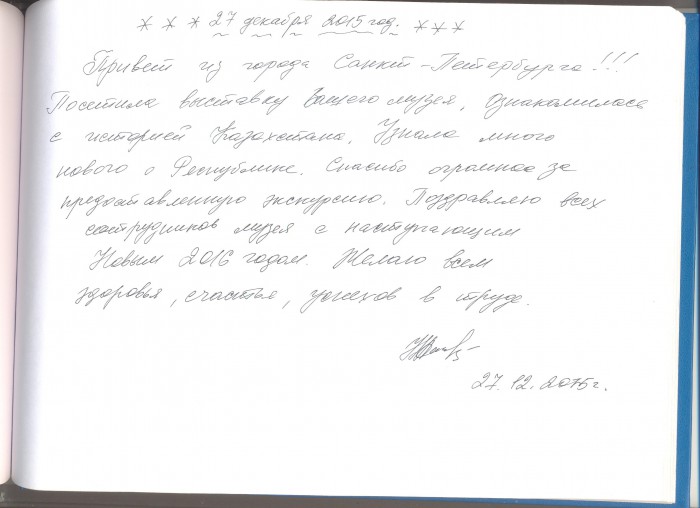 * * * 27 декабря 2015 год. * * *
Привет из города Санкт-Петербурга!!!
Посетила выставку Вашего музея, ознакомилась
с историей Казахстана. Узнала много
нового о Республике. Спасибо огромное за
предоставленную экскурсию. Поздравляю всех
сотрудников музея с наступающим
Новым 2016 годом. Желаю всем
здоровья, счастья, успехов в труде.
27.12.2015г.